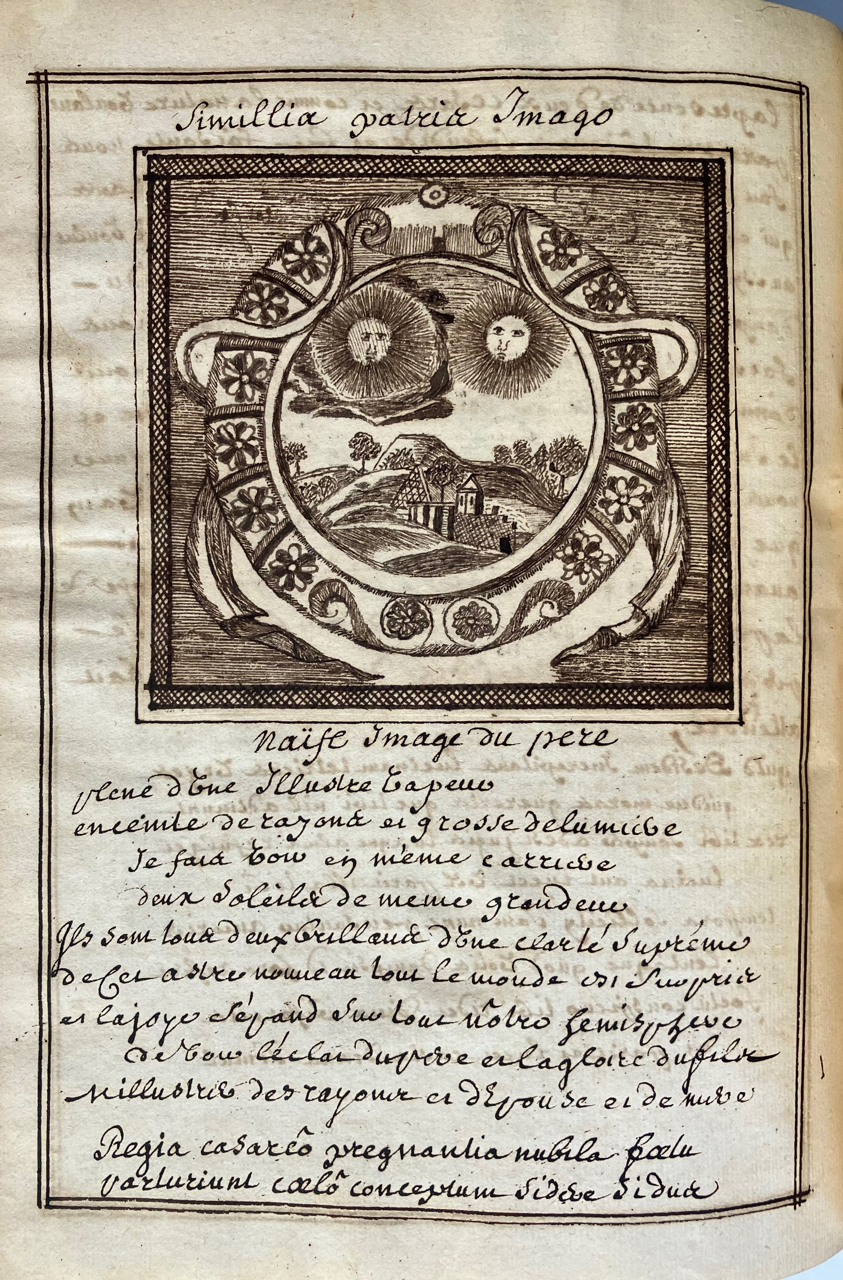 Simillia patria Imago
Naïfe Image du pere
plene d'Une Illustre Vapeur
enceinte de rayons et grosse de lumiere
Je fais Voir en même carriere
deux Soleils de meme grandeur
Ils sont tous deux brillans d'Une clarté Supréme
de Cet astre nouveau tout le monde est Surpris
et la joye Sépand Sur tout nôtre hemisphere
de Voir l'éclat du pere et la gloire du fils
M'illustrer des rayons et d'Epouse et de mere
Regia casareô pregnantia nubila fœtu
parturiunt cœlô conceptum Sidere Sidus